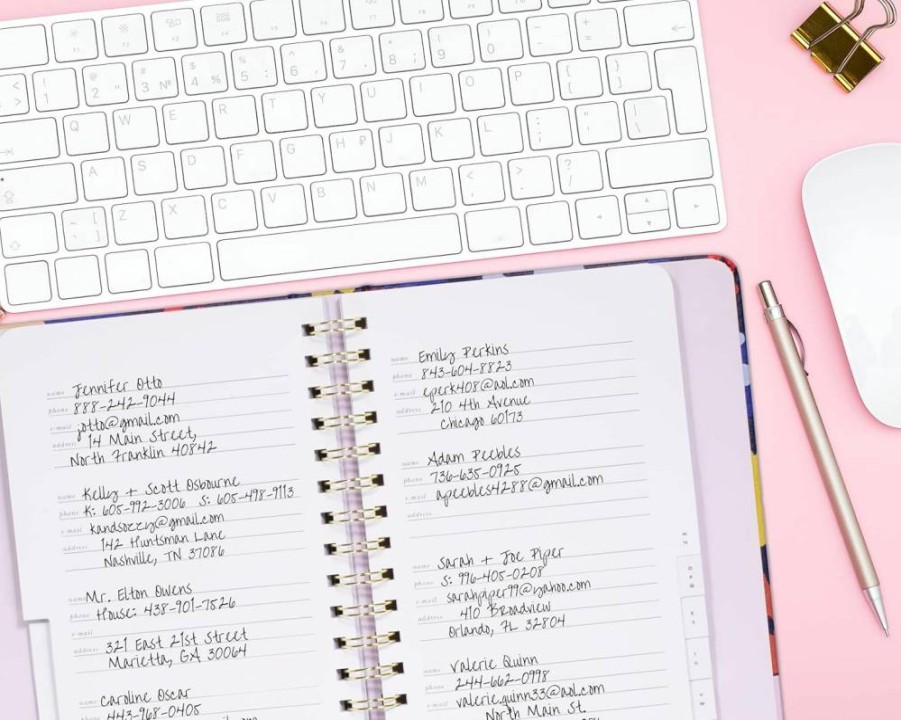 name Jennifer Otto
phone 888-242-9044
e-mail jotto@gmail.com
address 14 Main Street,
North Franklin 40842
name Kelly + Scott Osbourne
phone K: 605-992-3006 S: 605-498-9113
e-mail kandsozzy@gmail.com
address 142 Huntsman Lane
Nashville, TN 37086
name Mr. Elton Owens
phone House: 438-901-7526
e-mail
address 321 East 21st Street
Marietta, GA 30064
name Caroline Oscar
443-968-0405
name Emily Perkins
phone 843-604-8823
e-mail eperk408@aol.com
address 210 4th Avenue
Chicago 60173
name Adam Peebles
phone 736-635-0925
e-mail apeebles4288@gmail.com
address
name Sarah + Joe Piper
phone S: 996-405-0208
e-mail sarahpiper99@yahoo.com
address 410 Broadview
Orlando, FL 32804
name Valerie Quinn
phone 244-662-0998
e-mail valerie.quinn33@aol.com
North Main St.